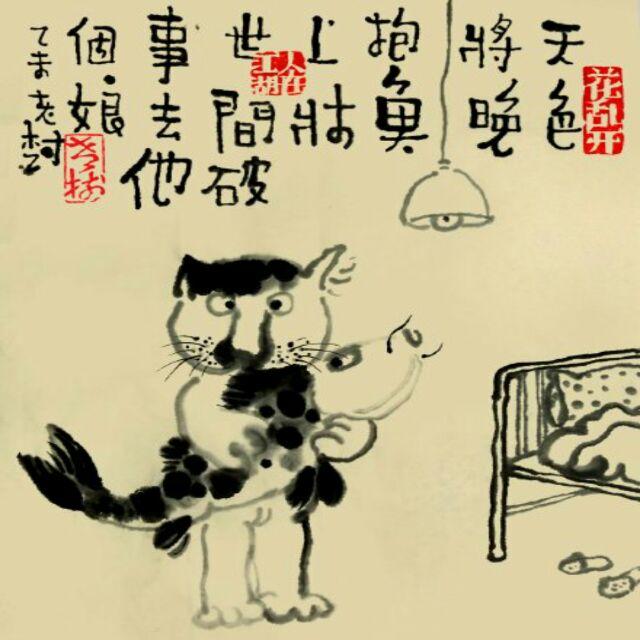 天色
將晚
抱魚
上牀
世間破
事去他
個娘
乙未老村
花乱开
人在
江湖
老村